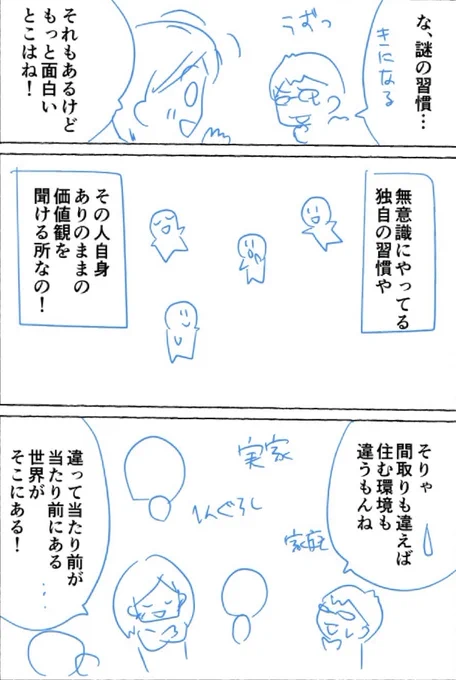 な、謎の習慣…
きになる
うずっ
それもあるけど
もっと面白い
とこはね！
無意識にやってる
独自の習慣や
その人自身
ありのままの
価値観を
聞ける所なの！
そりゃ
間取りも違えば
住む環境も
違うもんね
実家
一人ぐらし
家庭
違って当たり前が
当たり前にある
世界が
そこにある！
…